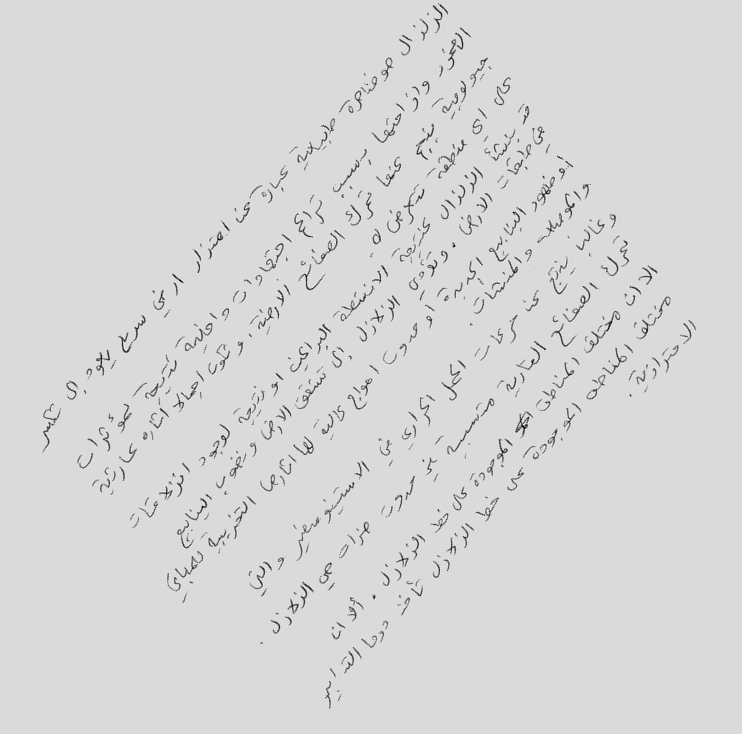 الزلزال هو ظاهرة طبيعية عبارة عن اهتزاز ارضي سريع يعود الى تكسر
الصخور وازاحتها بسبب تراكم اجتهادات داخلية نتيجة لمؤثرات
جيولوجية ينجم عنها تحرك الصفائح الارضية. وتكون اجمالا آثاره كارثية
على اي منطقة تتعرض له.
قد ينشأ الزلزال كنتيجة لانشطة البراكين او نتيجة لوجود انزلاقات
في طبقات الارض. وتؤدي الزلازل الى تشقق الارض ونضوب الينابيع
او ظهور الينابيع الجديدة او حدوث امواج عالية لها اثارها التخريبية للمباني
والموصلات والمنشآت.
وغالبا ينتج عن حركات الحمل الحراري في الاستينوسفير والتي
تحرك الصفائح القارية متسببة في حدوث هزات هي الزلازل.
الا ان مختلف المناطق الموجودة على خط الزلازل. الا ان
مختلف المناطق الموجودة على خط الزلازل تأخذ دوما التدابير
الاحترازية.